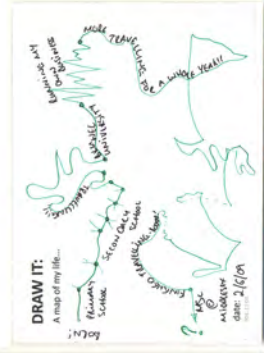 DRAW IT:
A map of my life...
BORN!
PRIMARY
SCHOOL
SECONDARY
SCHOOL
TRAVELLING!!
BRUNEL
UNIVERSITY
RUNNING MY
OWN BUSINESS
MORE
TRAVELLING
FOR A WHOLE YEAR!!
FINISHED TRAVELLING
MSC
@
MIDDLESEX
?
date: 2/6/09